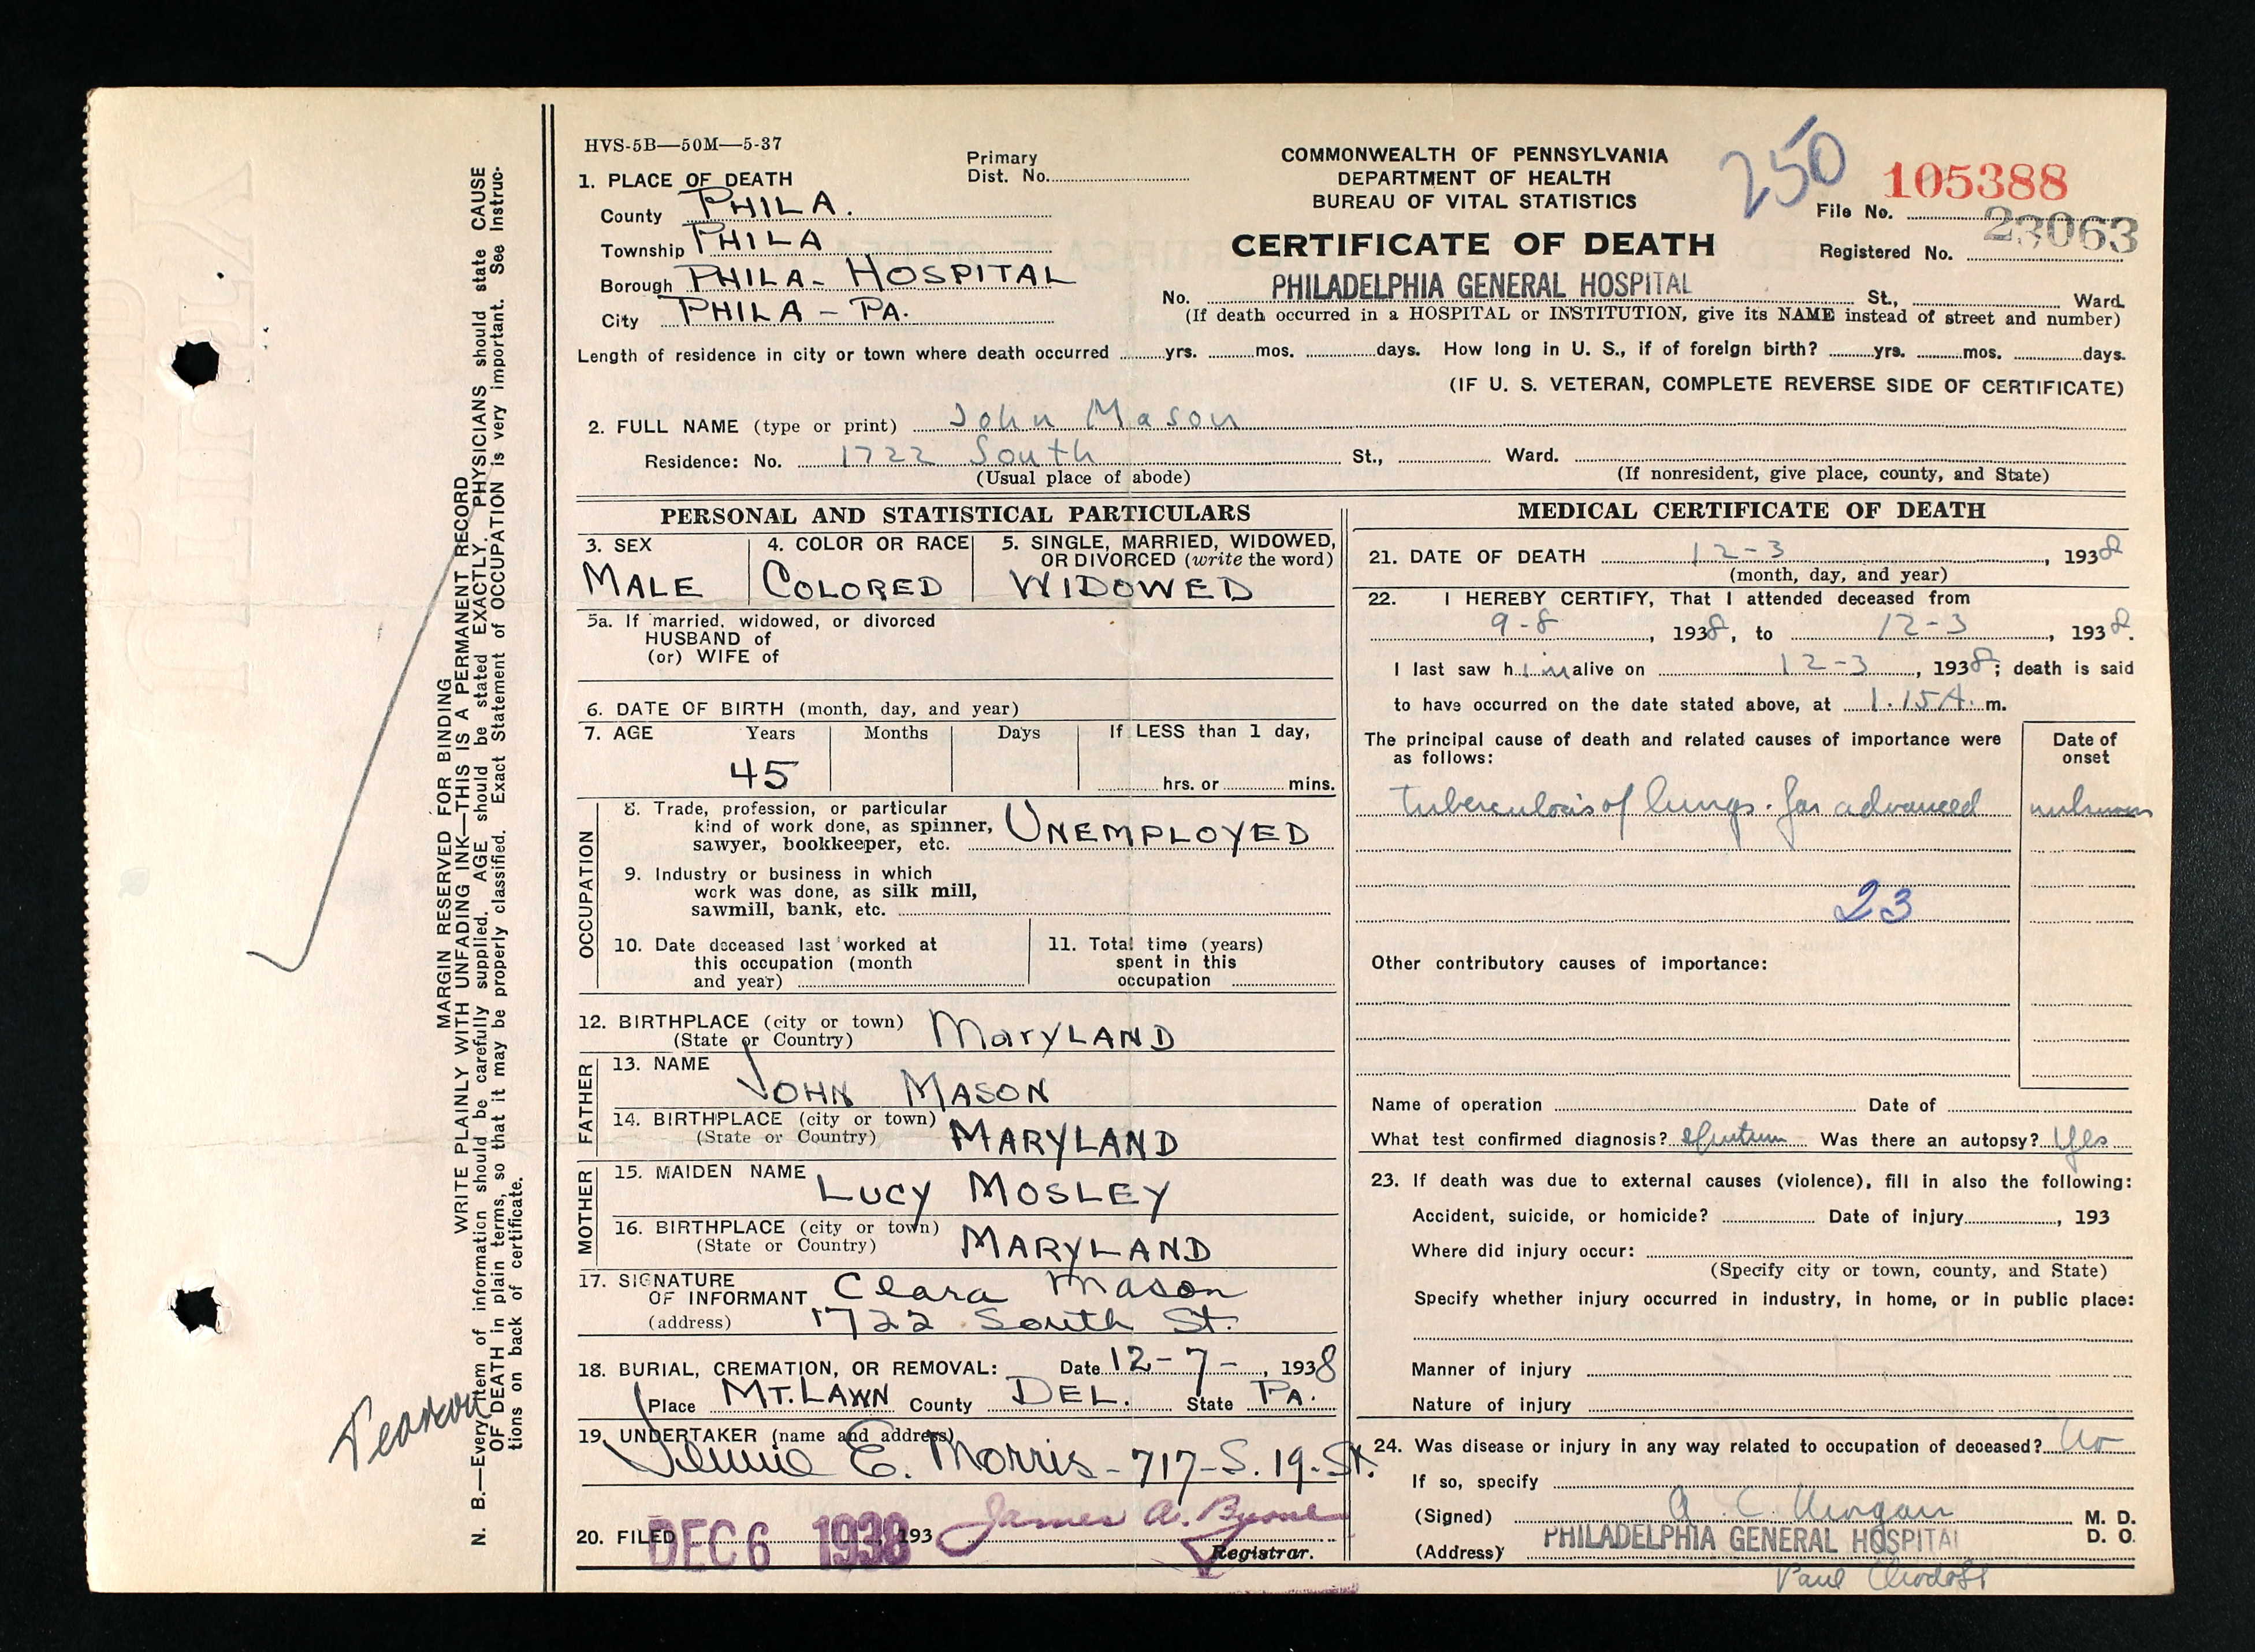 HVS-5B—50M—5-37
COMMONWEALTH OF PENNSYLVANIA
DEPARTMENT OF HEALTH
BUREAU OF VITAL STATISTICS
CERTIFICATE OF DEATH
Primary Dist. No.
250
105388
File No.
23063
Registered No.
1. PLACE OF DEATH
County PHILA.
Township PHILA
Borough PHILA- HOSPITAL
City PHILA - PA.
No. PHILADELPHIA GENERAL HOSPITAL St., Ward.
(If death occurred in a HOSPITAL or INSTITUTION, give its NAME instead of street and number)
Length of residence in city or town where death occurred yrs. mos. days. How long in U. S., if of foreign birth? yrs. mos. days.
(IF U. S. VETERAN, COMPLETE REVERSE SIDE OF CERTIFICATE)
2. FULL NAME (type or print) John Mason
Residence: No. 1722 South St., Ward.
(Usual place of abode) (If nonresident, give place, county, and State)
PERSONAL AND STATISTICAL PARTICULARS
3. SEX MALE
4. COLOR OR RACE COLORED
5. SINGLE, MARRIED, WIDOWED, OR DIVORCED (write the word) WIDOWED
5a. If married, widowed, or divorced
HUSBAND of
(or) WIFE of
6. DATE OF BIRTH (month, day, and year)
7. AGE Years Months Days If LESS than 1 day,
45 hrs. or mins.
OCCUPATION
8. Trade, profession, or particular
kind of work done, as spinner,
sawyer, bookkeeper, etc. UNEMPLOYED
9. Industry or business in which
work was done, as silk mill,
sawmill, bank, etc.
10. Date deceased last worked at
this occupation (month
and year)
11. Total time (years)
spent in this
occupation
12. BIRTHPLACE (city or town)
(State or Country) MARYLAND
FATHER
13. NAME JOHN MASON
14. BIRTHPLACE (city or town)
(State or Country) MARYLAND
MOTHER
15. MAIDEN NAME LUCY MOSLEY
16. BIRTHPLACE (city or town)
(State or Country) MARYLAND
17. SIGNATURE
OF INFORMANT Clara Mason
(address) 1722 South St.
18. BURIAL, CREMATION, OR REMOVAL: Date 12-7-, 1938
Place MT. LAWN County DEL. State PA.
19. UNDERTAKER (name and address)
Jennie E. Morris - 717-S. 19-St.
20. FILED DEC 6 1938 193 James A. Byrne
Registrar.
MEDICAL CERTIFICATE OF DEATH
21. DATE OF DEATH 12-3, 1938
(month, day, and year)
22. I HEREBY CERTIFY, That I attended deceased from
9-8, 1938, to 12-3, 1938.
I last saw him alive on 12-3, 1938; death is said
to have occurred on the date stated above, at 1.15 A. m.
The principal cause of death and related causes of importance were
as follows:
Date of
onset
Tuberculosis of lungs. far advanced unknown
23
Other contributory causes of importance:
Name of operation Date of
What test confirmed diagnosis? sputum Was there an autopsy? Yes
23. If death was due to external causes (violence), fill in also the following:
Accident, suicide, or homicide? Date of injury, 193
Where did injury occur:
(Specify city or town, county, and State)
Specify whether injury occurred in industry, in home, or in public place:
Manner of injury
Nature of injury
24. Was disease or injury in any way related to occupation of deceased? no
If so, specify
(Signed) A. C. M. D.
(Address) PHILADELPHIA GENERAL HOSPITAL D. O.
Paul
MARGIN RESERVED FOR BINDING
WRITE PLAINLY WITH UNFADING INK—THIS IS A PERMANENT RECORD
N. B.—Every item of information should be carefully supplied. AGE should be stated EXACTLY. PHYSICIANS should state CAUSE
OF DEATH in plain terms, so that it may be properly classified. Exact Statement of OCCUPATION is very important. See Instruc-
tions on back of certificate.